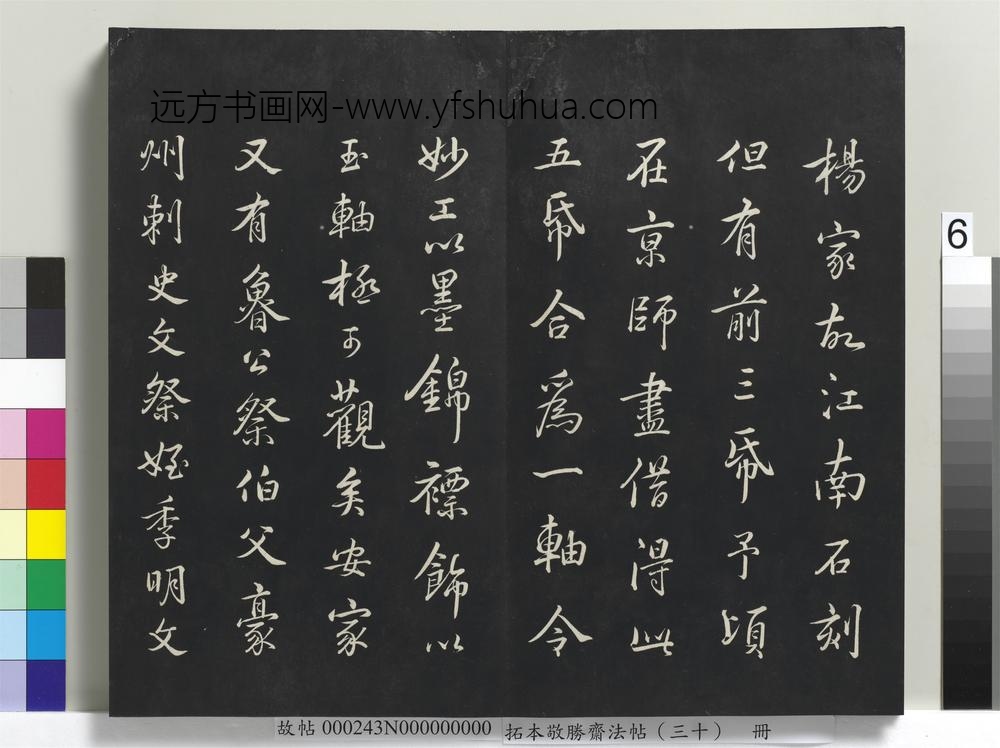 远方书画网-www.yfshuhua.com
楊家故江南石刻
但有前三帋予頃
在京師盡借得此
五帋合爲一軸令
妙工以墨錦褾飾以
玉軸極可觀矣安家
又有魯公祭伯父豪
州刺史文祭姪季明文
6
故帖 000243N000000000 拓本敬勝齋法帖（三十） 冊